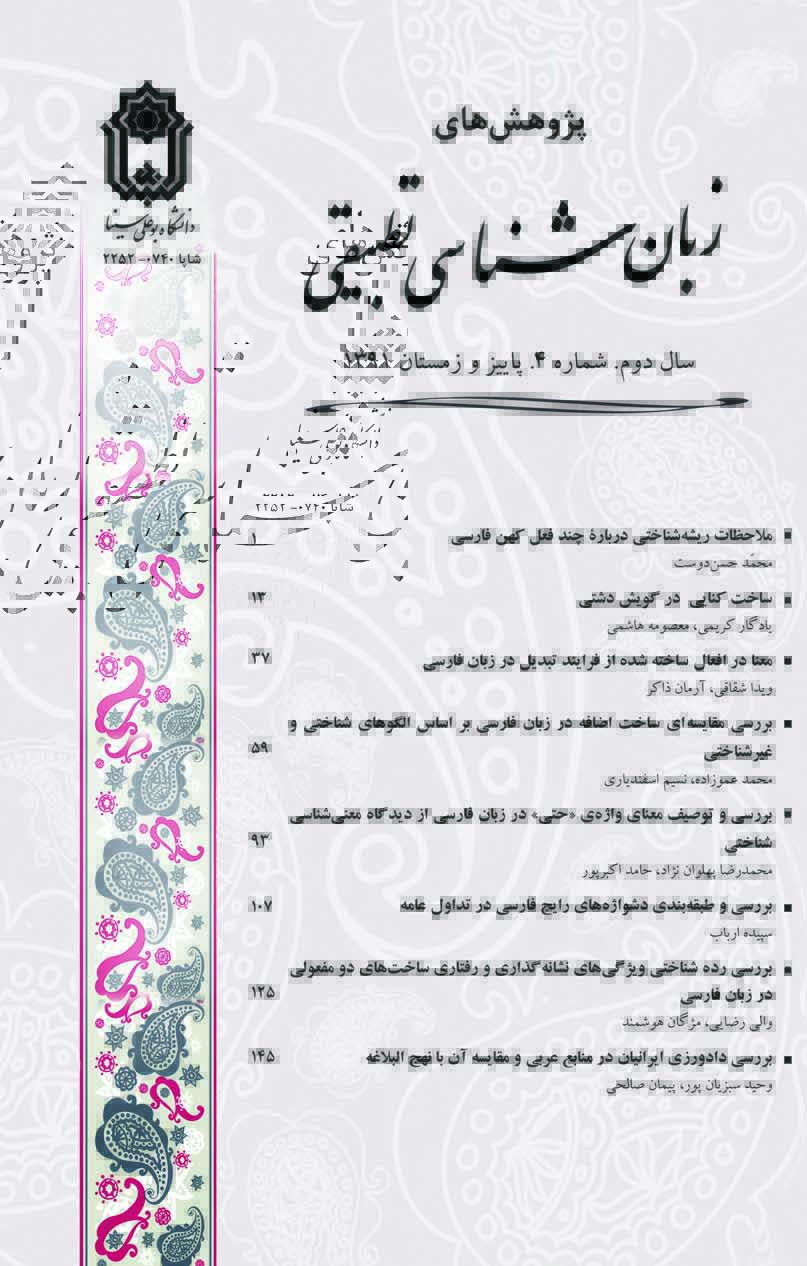 پژوهش‌های
زبان‌شناسی تطبیقی
سال دوم. شماره ۴. پاییز و زمستان ۱۳۹۱
دانشگاه بوعلی سینا
شاپا ۰۷۴۰-۲۲۵۲
دانشگاه بوعلی سینا
شاپا ۰۷۴۰-۲۲۵۲
ملاحظات ریشه‌شناختی دربارهٔ چند فعل کهن فارسی ۱
محمّد حسن‌دوست
ساخت کنایی در گویش دشتی ۱۳
یادگار کریمی، معصومه هاشمی
معنا در افعال ساخته شده از فرایند تبدیل در زبان فارسی ۳۷
ویدا شقاقی، آرمان ذاکر
بررسی مقایسه‌ای ساخت اضافه در زبان فارسی بر اساس الگوهای شناختی و
غیرشناختی ۵۹
محمد عموزاده، نسیم اسفندیاری
بررسی و توصیف معنای واژه‌ی «حتی» در زبان فارسی از دیدگاه معنی‌شناسی
شناختی ۹۳
محمدرضا پهلوان نژاد، حامد اکبرپور
بررسی و طبقه‌بندی دشواژه‌های رایج فارسی در تداول عامه ۱۰۷
سپیده ارباب
بررسی رده شناختی ویژگی‌های نشانه‌گذاری و رفتاری ساخت‌های دو مفعولی
در زبان فارسی ۱۲۵
والی رضایی، مژگان هوشمند
بررسی دادورزی ایرانیان در منابع عربی و مقایسه آن با نهج البلاغه ۱۴۵
وحید سبزیان پور، پیمان صالحی